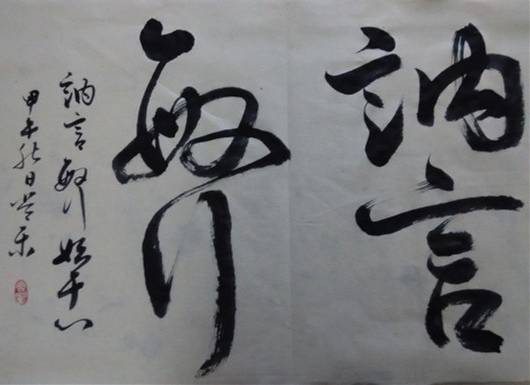 訥言
敏行
訥言敏行始于心
甲午秋日